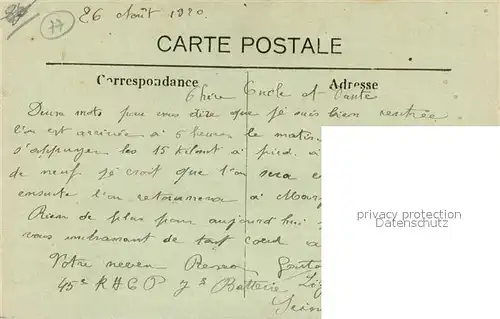 26 Août 1920
77
CARTE POSTALE
Correspondance
Adresse
Chère Oncle et Tante
Deux mots pour vous dire que je suis bien rentrée
l'on est arrivée à 6 heures le matin
s'appuyer les 15 kilomt à pied. a
de neuf je croit que l'on sera
ensuite l'on retournera à
Rien de plus pour aujourd'hui
vous de tout coeur
Votre neveu
45e R A C P 7e Batterie
privacy protection
Datenschutz